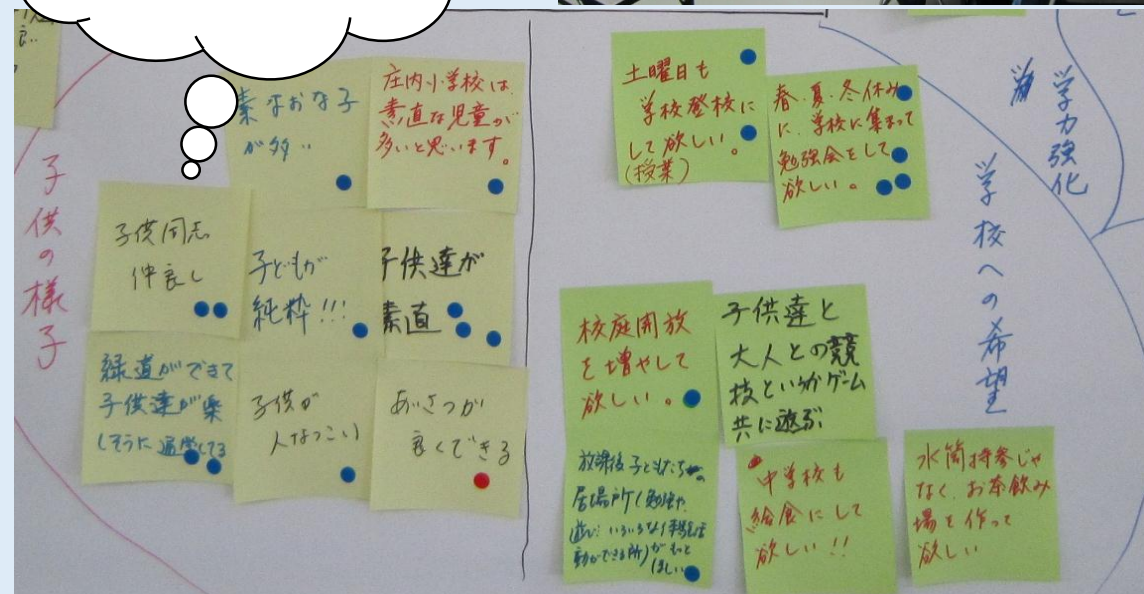 子供の様子
素なおな子
が多い
庄内小学校は、
素直な児童が
多いと思います。
子供同志
仲良し
子どもが
純粋!!!
子供達が
素直
緑道ができて
子供達が楽
しそうに通学してる
子供が
人なつこい
あいさつが
良くできる
土曜日も
学校登校に
して欲しい。
(授業)
春、夏、冬休み
に、学校に集まって
勉強会をして
欲しい。
学力強化
学校への希望
校庭開放
を増やして
欲しい。
子供達と
大人との競
技というかゲーム
共に遊ぶ
放課後子どもたちの
居場所(勉強や
遊び、いろいろな体験活
動ができる所)がもっと
ほしい
中学校も
給食にして
欲しい!!
水筒持参じゃ
なく、お茶飲み
場を作って
欲しい